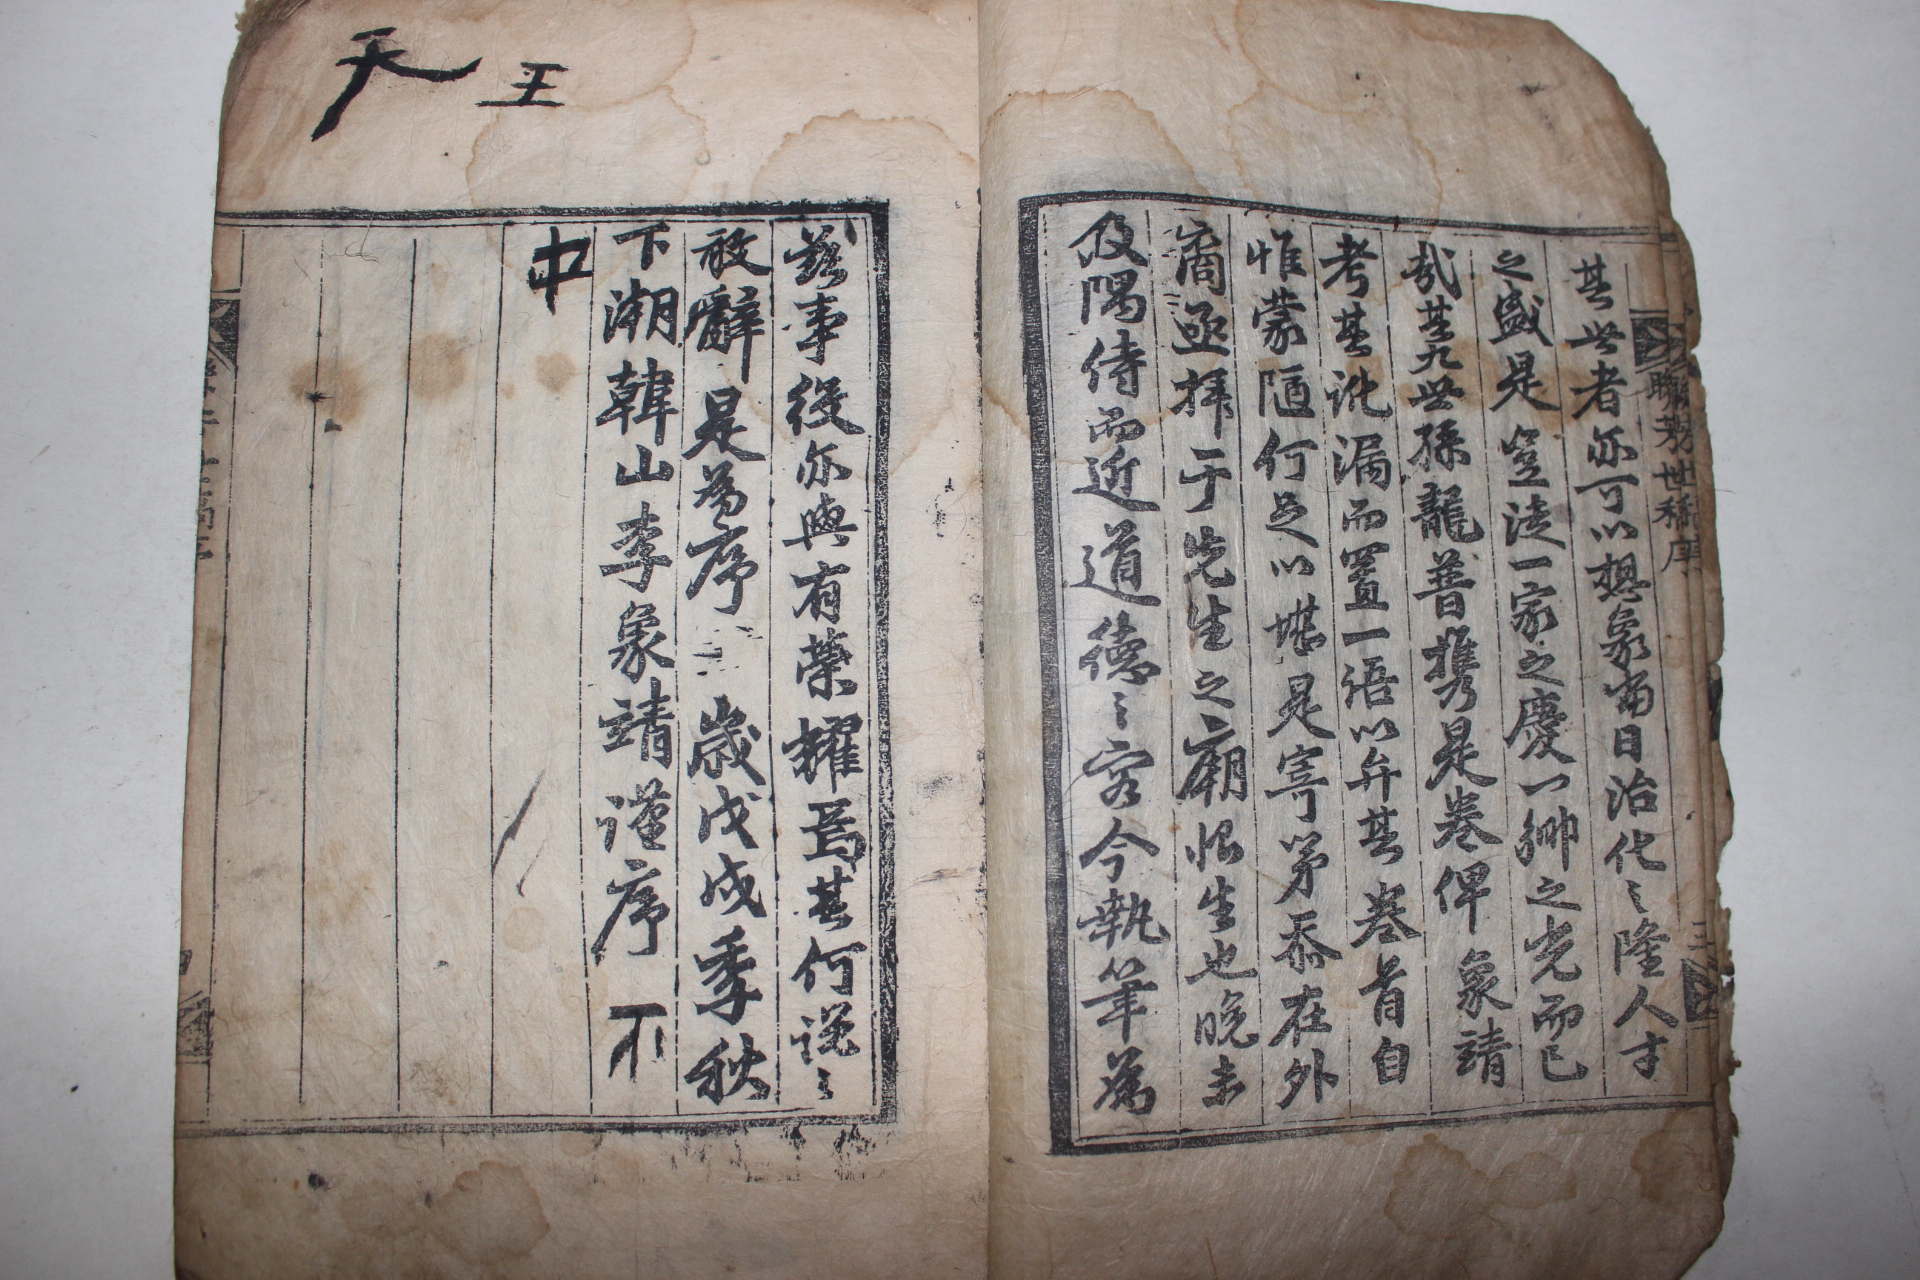 其世者亦可以想象當日治化之隆人才
之盛是豈徒一家之慶一鄉之光而已
哉其九世孫龍普攜是卷俾象靖
考其訛漏而置一語以弁其卷首自
惟蒙陋何足以堪是寄第忝在外
裔亟拜于先生之廟恨生也晚未
及隅侍而近道德之容今執筆爲
聯芳世稿序
三
玆事役亦與有榮耀焉其何說之
敢辭是爲序 歲戊戌季秋
下潮韓山李象靖謹序 不
中
天 王